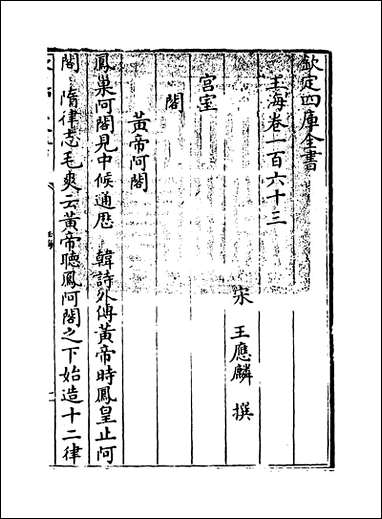 欽定四庫全書
玉海卷一百六十三
宋 王應麟 撰
宮室
閣
黃帝阿閣
鳳巢阿閣見中候通厯 韓詩外傳黃帝時鳳皇止阿
閣 隋律志毛爽云黃帝聽鳳阿閣之下始造十二律